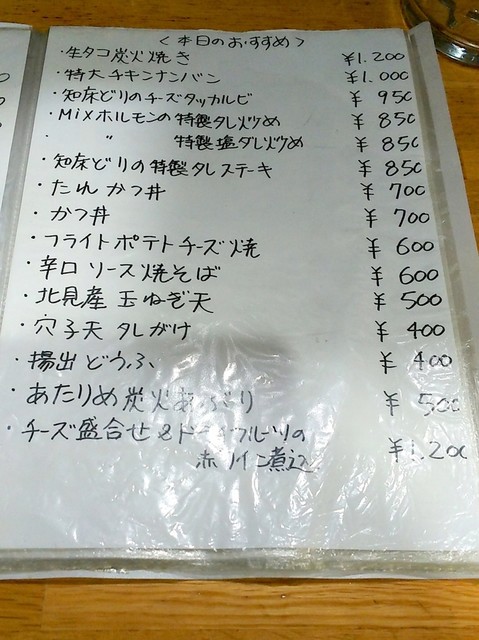 ＜本日のおすすめ＞
・生タコ炭火焼き ¥1.200
・特大チキンナンバン ¥1.000
・知床どりのチーズタッカルビ ¥ 950
・Mixホルモンの特製タレ炒め ¥ 850
・ 〃 特製塩ダレ炒め ¥ 850
・知床どりの特製タレステーキ ¥ 850
・たれかつ丼 ¥ 700
・かつ丼 ¥ 700
・フライトポテトチーズ焼 ¥ 600
・辛口ソース焼そば ¥ 600
・北見産玉ねぎ天 ¥ 500
・穴子天タレがけ ¥ 400
・揚出どうふ ¥ 400
・あたりめ炭火あぶり ¥ 500
・チーズ盛合せ&ドライフルーツの ¥1.200
赤ワイン煮込